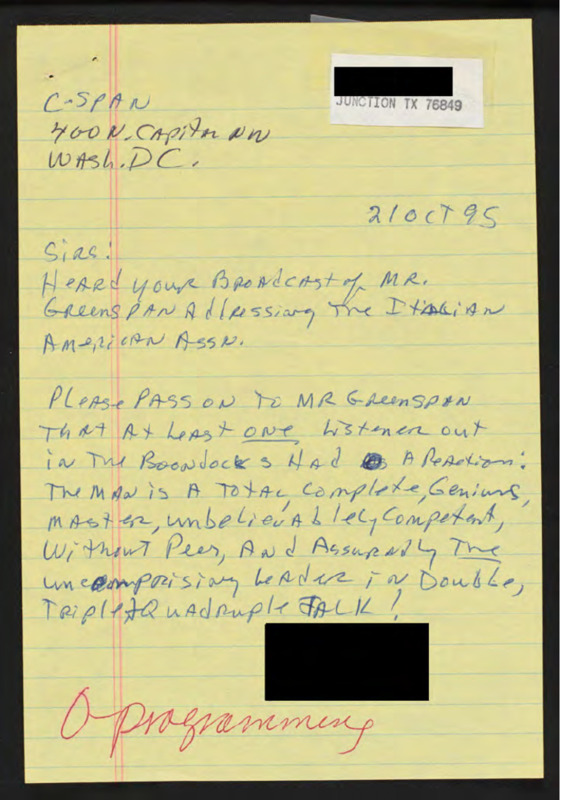 JUNCTION TX 76849
C-SPAN
400 N. CAPITOL NW
WASH. DC.
21 OCT 95
SIRS:
HEARD YOUR BROADCAST OF MR.
GREENSPAN ADDRESSING THE ITALIAN
AMERICAN ASSN.
PLEASE PASS ON TO MR GREENSPAN
THAT AT LEAST ONE LISTENER OUT
IN THE BOONDOCKS HAD A REACTION:
THE MAN IS A TOTAL, COMPLETE, GENIUS,
MASTER, UNBELIEVABLELY COMPETENT,
WITHOUT PEER, AND ASSUREDLY THE
UNCOMPORISING LEADER IN DOUBLE,
TRIPLE & QUADRUPLE TALK!
programming